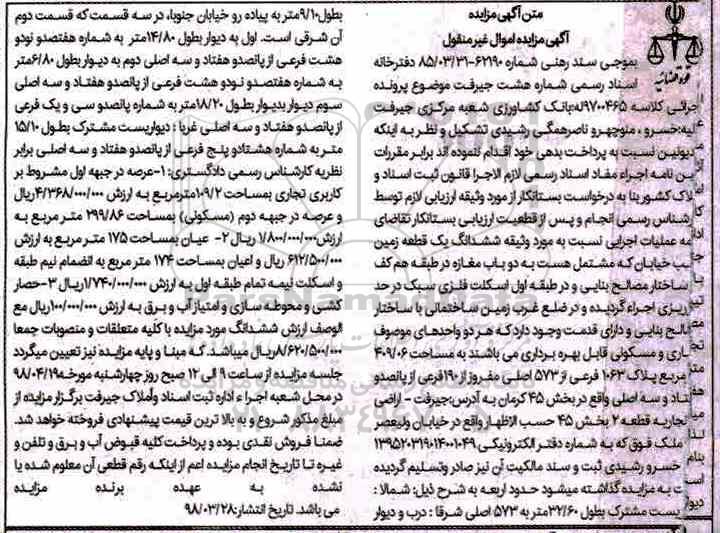 متن آگهی مزایده
آگهی مزایده اموال غیر منقول
بموجب سند رهنی شماره ۶۲۱۹۰-۸۵/۰۳/۳۱ دفترخانه
اسناد رسمی شماره هشت جیرفت موضوع پرونده
اجرائی کلاسه ۹۷۰۰۴۶۵له:بانک کشاورزی شعبه مرکزی جیرفت
لیه:خسرو ، منوچهرو ناصرهمگی رشیدی تشکیل و نظر به اینکه
دیونین نسبت به پرداخت بدهی خود اقدام ننموده اند برابر مقررات
ین نامه اجراء مفاد اسناد رسمی لازم الاجرا قانون ثبت اسناد و
لاک کشور بنا به درخواست بستانکار از مورد وثیقه ارزیابی لازم توسط
رشناس رسمی انجام و پس از قطعیت ارزیابی بستانکار تقاضای
مه عملیات اجرایی نسبت به مورد وثیقه ششدانگ یک قطعه زمین
ب خیابان که مشتمل هست به دو باب مغازه در طبقه هم کف
ساختار مصالح بنایی و در طبقه اول اسکلت فلزی سبک در حد
ریزی اجراء گردیده و در ضلع غرب زمین ساختمانی با ساختار
مصالح بنایی و دارای قدمت وجود دارد که هر دو واحدهای موصوف
جاری و مسکونی قابل بهره برداری می باشند به مساحت ۴۰۹/۰۶
مربع پلاک ۱۰۶۳ فرعی از ۵۷۳ اصلی مفروز از ۱۹۰فرعی از پانصدو
تاد و سه اصلی واقع در بخش ۴۵ کرمان به آدرس:جیرفت - اراضی
تجاریه قطعه ۲ بخش ۴۵ حسب الاظهار واقع در خیابان ولیعصر
ملک فوق که به شماره دفتر الکترونیکی ۱۳۹۵۲۰۳۱۹۰۱۴۰۰۱۰۴۹
خسرو رشیدی ثبت و سند مالکیت آن نیز صادر وتسلیم گردیده
ت به مزایده گذاشته میشود حدود اربعه به شرح ذیل: شمالا :
یست مشترک بطول ۳۲/۶۰متر به ۵۷۳ اصلی شرقا : درب و دیوار
بطول۹/۱۰متر به پیاده رو خیابان جنوبا، در سه قسمت که قسمت دوم
آن شرقی است. اول به دیوار بطول ۱۴/۸۰متر به شماره هفتصدو نودو
هشت فرعی از پانصدو هفتاد و سه اصلی دوم به دیوار بطول ۶/۸۰متر
به شماره هفتصدو نودو هشت فرعی از پانصدو هفتاد و سه اصلی
سوم دیوار بدیوار بطول ۱۸/۲۰متر به شماره پانصدو سی و یک فرعی
از پانصدو هفتاد و سه اصلی غربا : دیواریست مشترک بطول ۱۵/۱۰
متر به شماره هشتادو پنج فرعی از پانصدو هفتادو و سه اصلی برابر
نظریه کارشناس رسمی دادگستری: ۱-عرصه در جبهه اول مشروط بر
کاربری تجاری بمساحت ۱۰۹/۲مترمربع به ارزش ۴/۳۶۸/۰۰۰/۰۰۰ریال
و عرصه در جبهه دوم (مسکونی) بمساحت ۲۹۹/۸۶ متر مربع به
ارزش۱/۸۰۰/۰۰۰/۰۰۰ ریال ۲- عیان بمساحت ۱۷۵ متر مربع به ارزش
۶۱۲/۵۰۰/۰۰۰ ریال و اعیان بمساحت ۱۷۴ متر مربع به انضمام نیم طبقه
و اسکلت نیمه تمام طبقه اول به ارزش ۱/۷۴۰/۰۰۰/۰۰۰ریال ۳-حصار
کشی و محوطه سازی و امتیاز آب و برق به ارزش ۱۰۰/۰۰۰/۰۰۰ریال مع
الوصف ارزش ششدانگ مورد مزایده با کلیه متعلقات و منصوبات جمعا
۸/۶۲۰/۵۰۰/۰۰۰ریال میباشد. که مبنا و پایه مزایده نیز تعیین میگردد
جلسه مزایده از ساعت ۹ الی ۱۲ صبح روز چهارشنبه مورخه۹۸/۰۴/۱۹
در محل شعبه اجراء اداره ثبت اسناد وأملاک جیرفت برگزار مزایده از
مبلغ مذکور شروع و به بالا ترین قیمت پیشنهادی فروخته خواهد شد.
ضمنا فروش نقدی بوده و پرداخت کلیه قبوض آب و برق و تلفن و
غیره تا تاریخ انجام مزایده اعم از اینکه رقم قطعی آن معلوم شده یا
نشده به عهده برنده مزایده
می باشد. تاریخ انتشار:۹۸/۰۳/۲۸